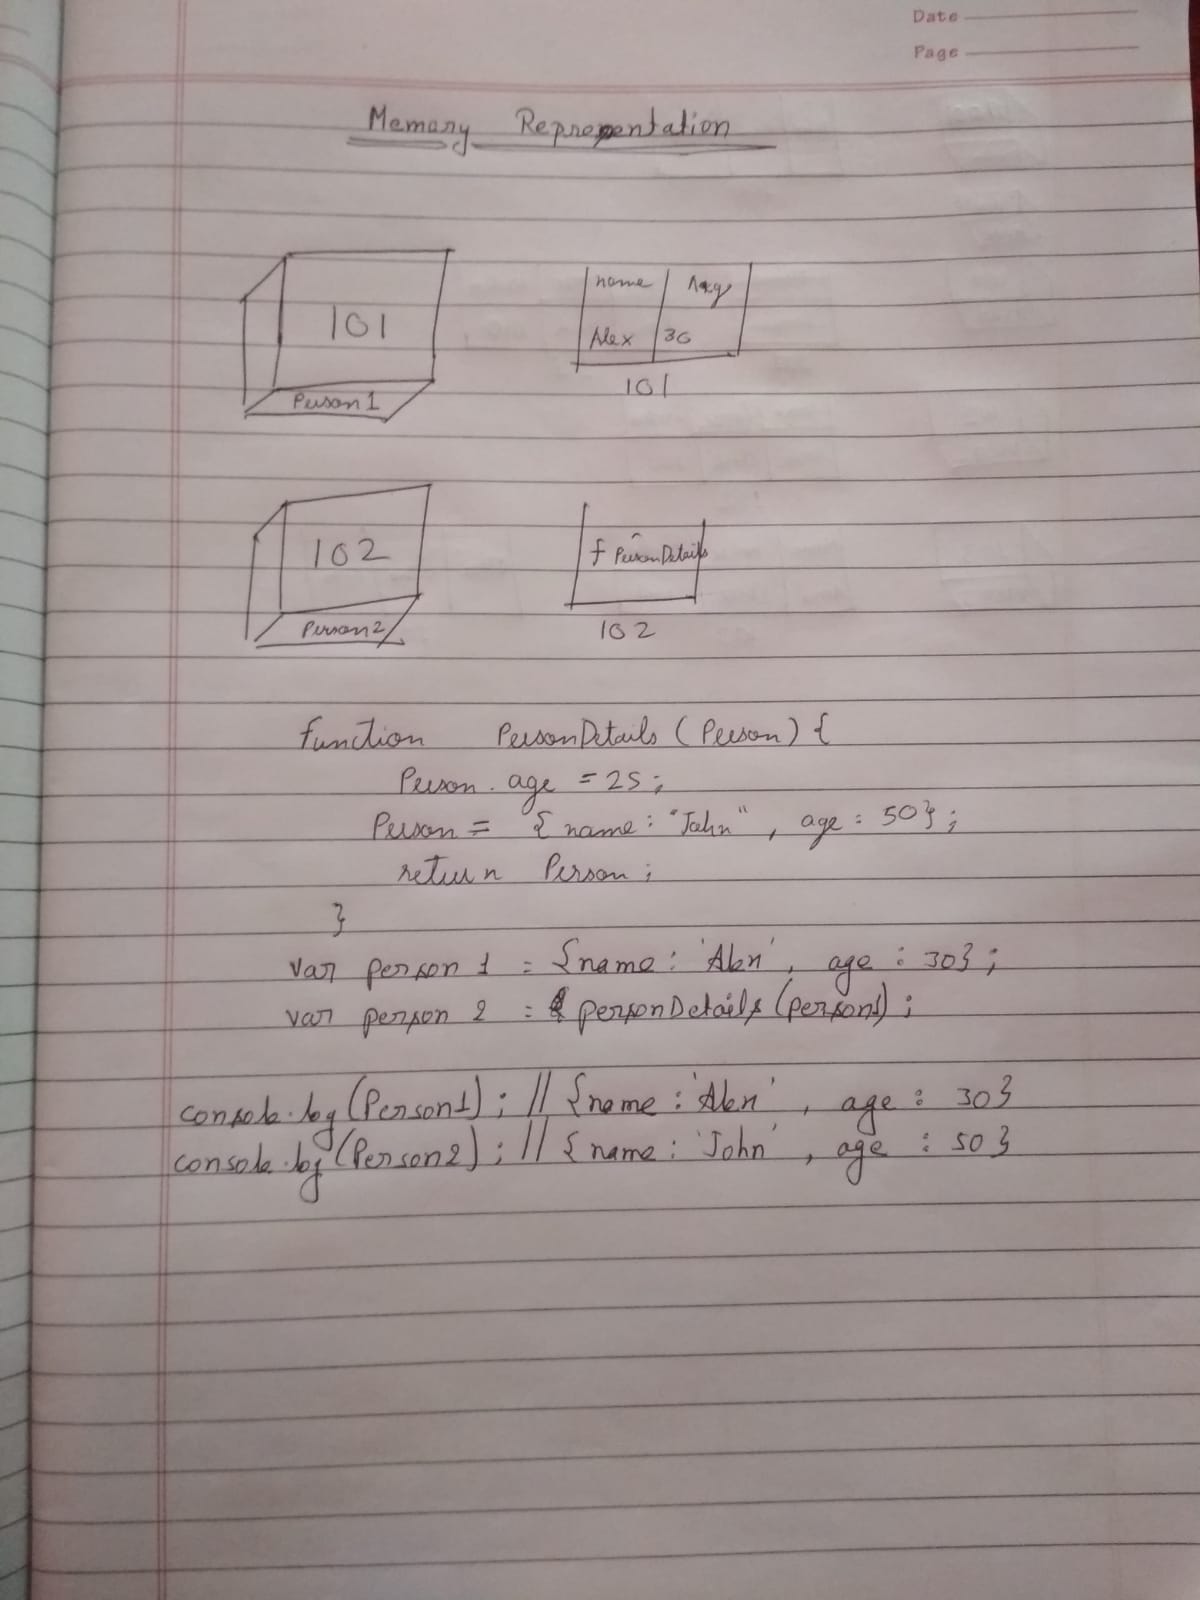 Date
Page
Memory Representation
101
Person1
name
Alex 30
101
102
Person2
f PersonDetails
102
function PersonDetails (Person) {
Person.age = 25;
Person = { name: "John", age: 50};
return Person;
}
var person 1 = {name: 'Alex', age : 30};
var person 2 = personDetails (person1);
console.log (Person1); // {name : 'Alex', age : 30}
console.log (Person2); // { name : 'John', age : 50}